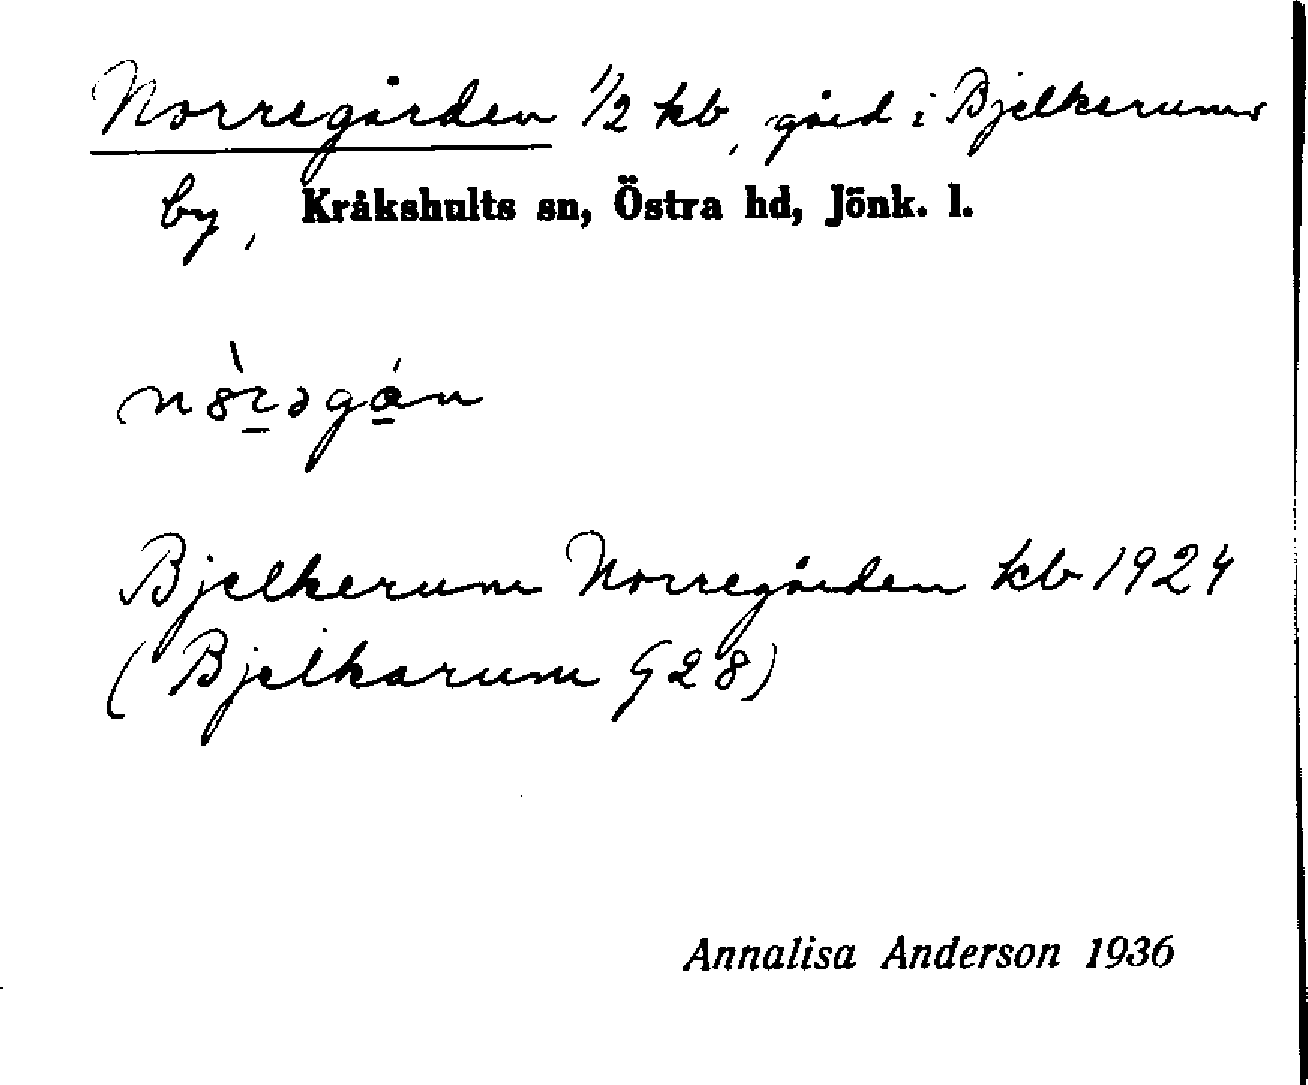 Norregården 1/2 kb, gård i Bjelkerums
by, Kråkshults sn, Östra hd, Jönk. l.
Bjelkerum Norregården kb 1924
(Bjelkarum G28)
Annalisa Anderson 1936